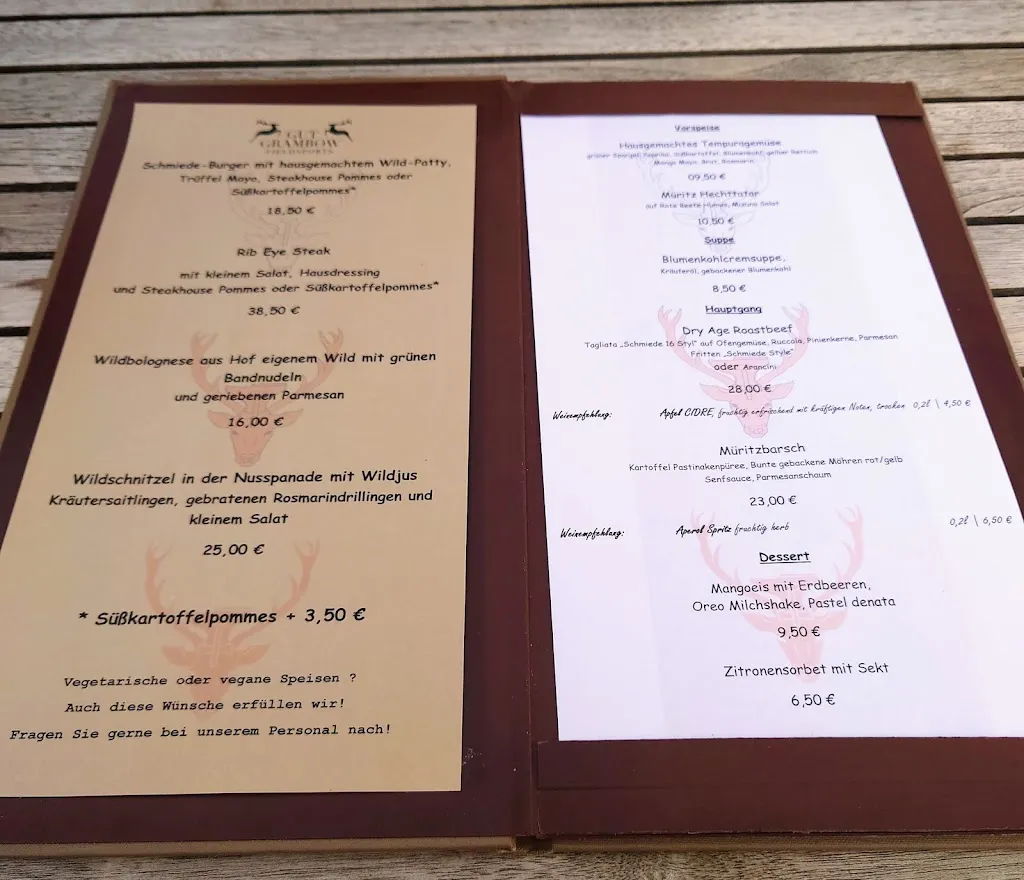 GUT
GRAMBOW
FIELDSPORTS
Schmiede-Burger mit hausgemachtem Wild-Patty,
Trüffel Mayo, Steakhouse Pommes oder
Süßkartoffelpommes*
18,50 €
Rib Eye Steak
mit kleinem Salat, Hausdressing
und Steakhouse Pommes oder Süßkartoffelpommes*
38,50 €
Wildbolognese aus Hof eigenem Wild mit grünen
Bandnudeln
und geriebenen Parmesan
16,00 €
Wildschnitzel in der Nusspanade mit Wildjus
Kräutersaitlingen, gebratenen Rosmarindrillingen und
kleinem Salat
25,00 €
* Süßkartoffelpommes + 3,50 €
Vegetarische oder vegane Speisen ?
Auch diese Wünsche erfüllen wir!
Fragen Sie gerne bei unserem Personal nach!
Vorspeise
Hausgemachtes Tempuragemüse
grüner Spargel, Paprika, Süßkartoffel, Blumenkohl, gelber Rettich
Mango Mayo, Brot, Rosmarin
09,50 €
Müritz Hechttatar
auf Rote Beete Humus, Mizuna Salat
10,50 €
Suppe
Blumenkohlcremsuppe,
Kräuteröl, gebackener Blumenkohl
8,50 €
Hauptgang
Dry Age Roastbeef
Tagliata „Schmiede 16 Styl" auf Ofengemüse, Ruccola, Pinienkerne, Parmesan
Fritten „Schmiede Style"
oder Arancini
28,00 €
Weinempfehlung: Apfel CIDRE, fruchtig erfrischend mit kräftigen Noten, trocken 0,2l \ 4,50 €
Müritzbarsch
Kartoffel Pastinakenpüree, Bunte gebackene Möhren rot/gelb
Senfsauce, Parmesanschaum
23,00 €
Weinempfehlung: Aperol Spritz fruchtig herb 0,2l \ 6,50 €
Dessert
Mangoeis mit Erdbeeren,
Oreo Milchshake, Pastel denata
9,50 €
Zitronensorbet mit Sekt
6,50 €